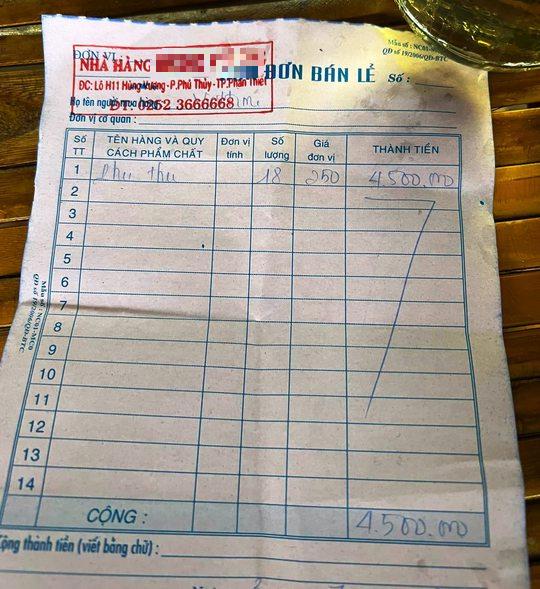 ĐƠN VỊ :
NHÀ HÀNG
ĐC: Lô H11 Hùng Vương-P.Phú Thủy-TP.Phan Thiết
ĐT: 0252 3666668
ĐƠN BÁN LẺ
Số :
Mẫu số : NC01-
QĐ số 19/2006/QĐ-BTC
Họ tên người mua hàng
Đơn vị cơ quan :
Số TT TÊN HÀNG VÀ QUY CÁCH PHẨM CHẤT Đơn vị tính Số lượng Giá đơn vị THÀNH TIỀN
1 Phụ thu 18 250 4.500.000
2
3
4
5
6
7
8
9
10
11
12
13
14
CỘNG : 4.500.000
Mẫu số : NC01-MC0
QĐ số 19/2006/QĐ-BTC
Cộng thành tiền (viết bằng chữ) :